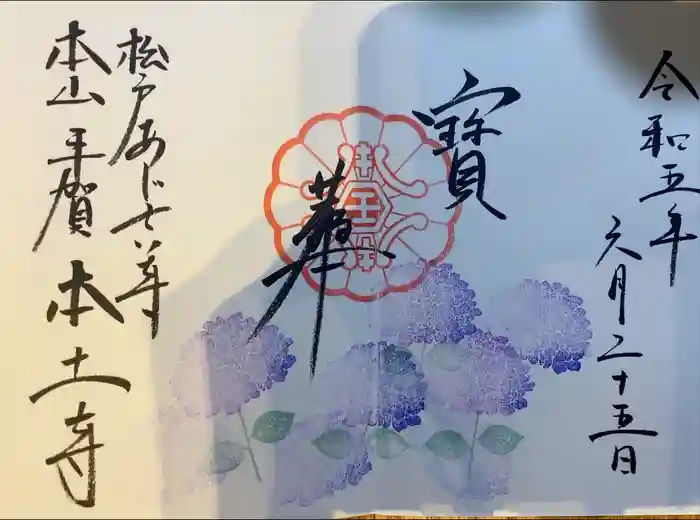 令和五年
六月二十五日
寶
華
松戸あじさい寺
本山平賀本土寺